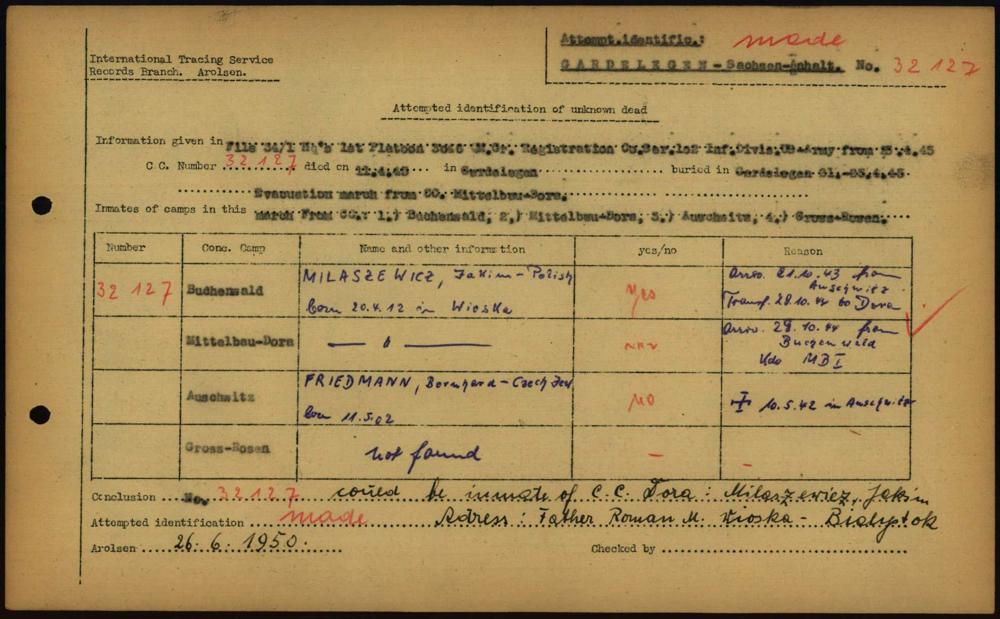 International Tracing Service
Records Branch. Arolsen.
Attempt.identific.: made
GARDELEGEN - Sachsen-Anhalt. No. 32127
Attempted identification of unknown dead
Information given in File 34/I Hq's 1st Platoon 3046 Registration Co.Ser.102 Inf.Divis.US-Army from
C.C. Number 32127 died on in Gardelegen buried in Gardelegen
Evacuation march from CC. Mittelbau-Dora.
Inmates of camps in this march from CC.: 1.) Buchenwald, 2.) Mittelbau-Dora, 3.) Auschwitz, 4.) Gross-Rosen.
Number Conc. Camp Name and other information yes/no Reason
32127 Buchenwald MILASZEWICZ, Jakim - Polish yes arriv. 21.10.43 from
Auschwitz
born 20.4.12 in Wioska Transf. 28.10.44 to Dora
Mittelbau-Dora arriv. 28.10.44 from
Kdo MBI
Auschwitz FRIEDMANN, Bernhard - Czech Jew NO 10.5.42 in Auschwitz
born 11.5.02
Gross-Rosen not found - -
Conclusion No. 32127 could be inmate of C.C. Dora: Milaszewicz, Jakim
Attempted identification made Adress: Father Roman M. Wioska - Bialystok
Arolsen 26.6.1950. Checked by